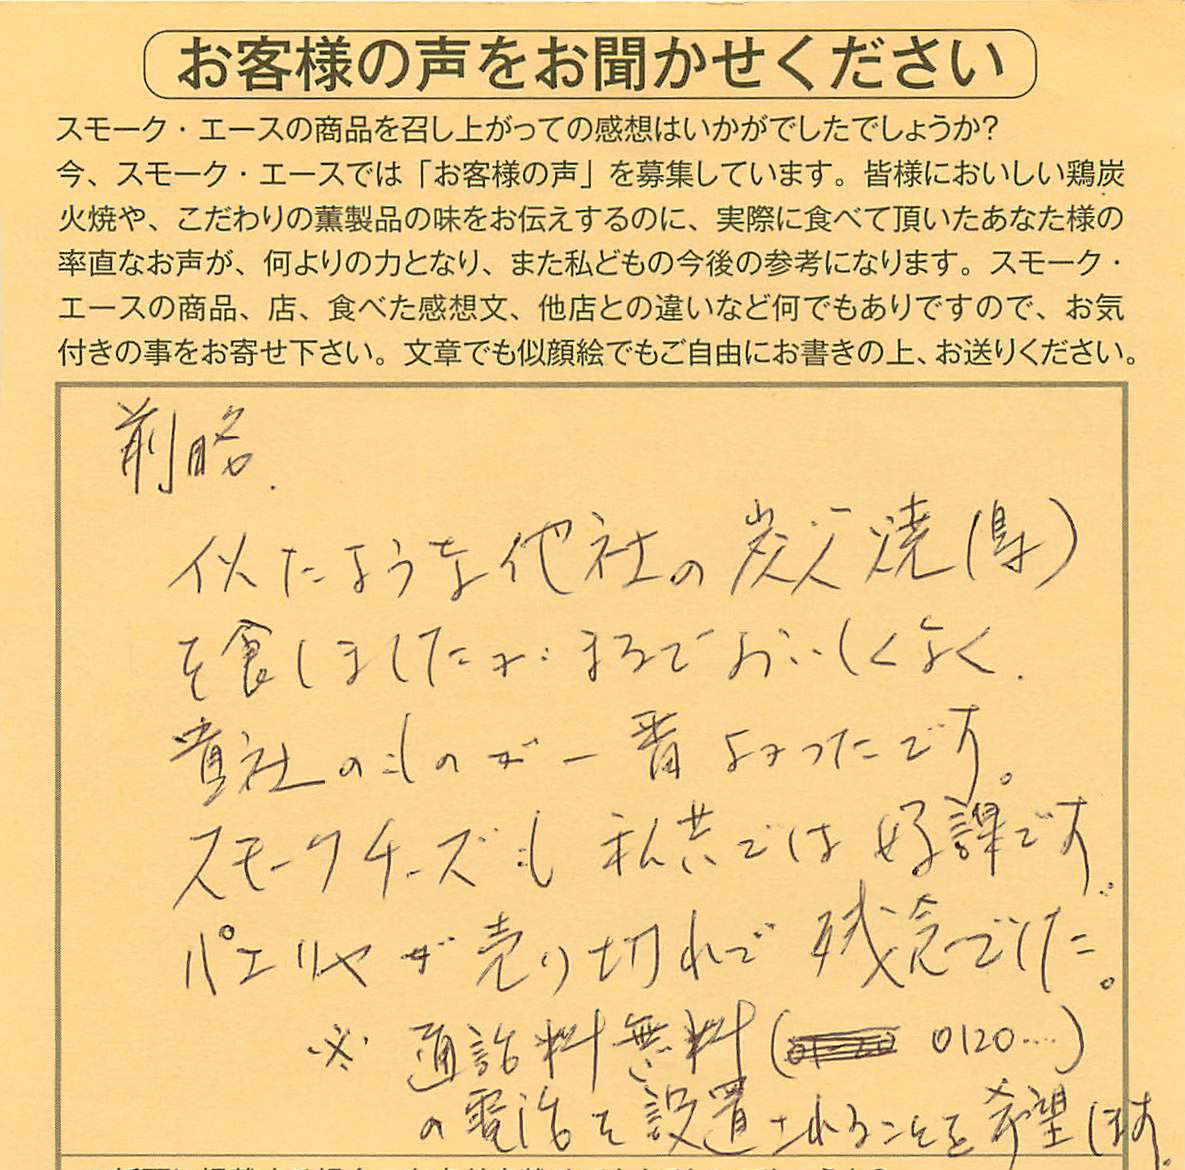 お客様の声をお聞かせください
スモーク・エースの商品を召し上がっての感想はいかがでしたでしょうか?
今、スモーク・エースでは「お客様の声」を募集しています。皆様においしい鶏炭
火焼や、こだわりの薫製品の味をお伝えするのに、実際に食べて頂いたあなた様の
率直なお声が、何よりの力となり、また私どもの今後の参考になります。スモーク・
エースの商品、店、食べた感想文、他店との違いなど何でもありですので、お気
付きの事をお寄せ下さい。文章でも似顔絵でもご自由にお書きの上、お送りください。
前略.
似たような他社の炭火焼(鳥)
を食しましたが まるでおいしくなく.
貴社のものが一番よかったです。
スモークチーズも 私共では 好評です。
パエリヤが売り切れで 残念でした。
※ 通話料無料( 0120....)
の電話を設置されることを希望します。